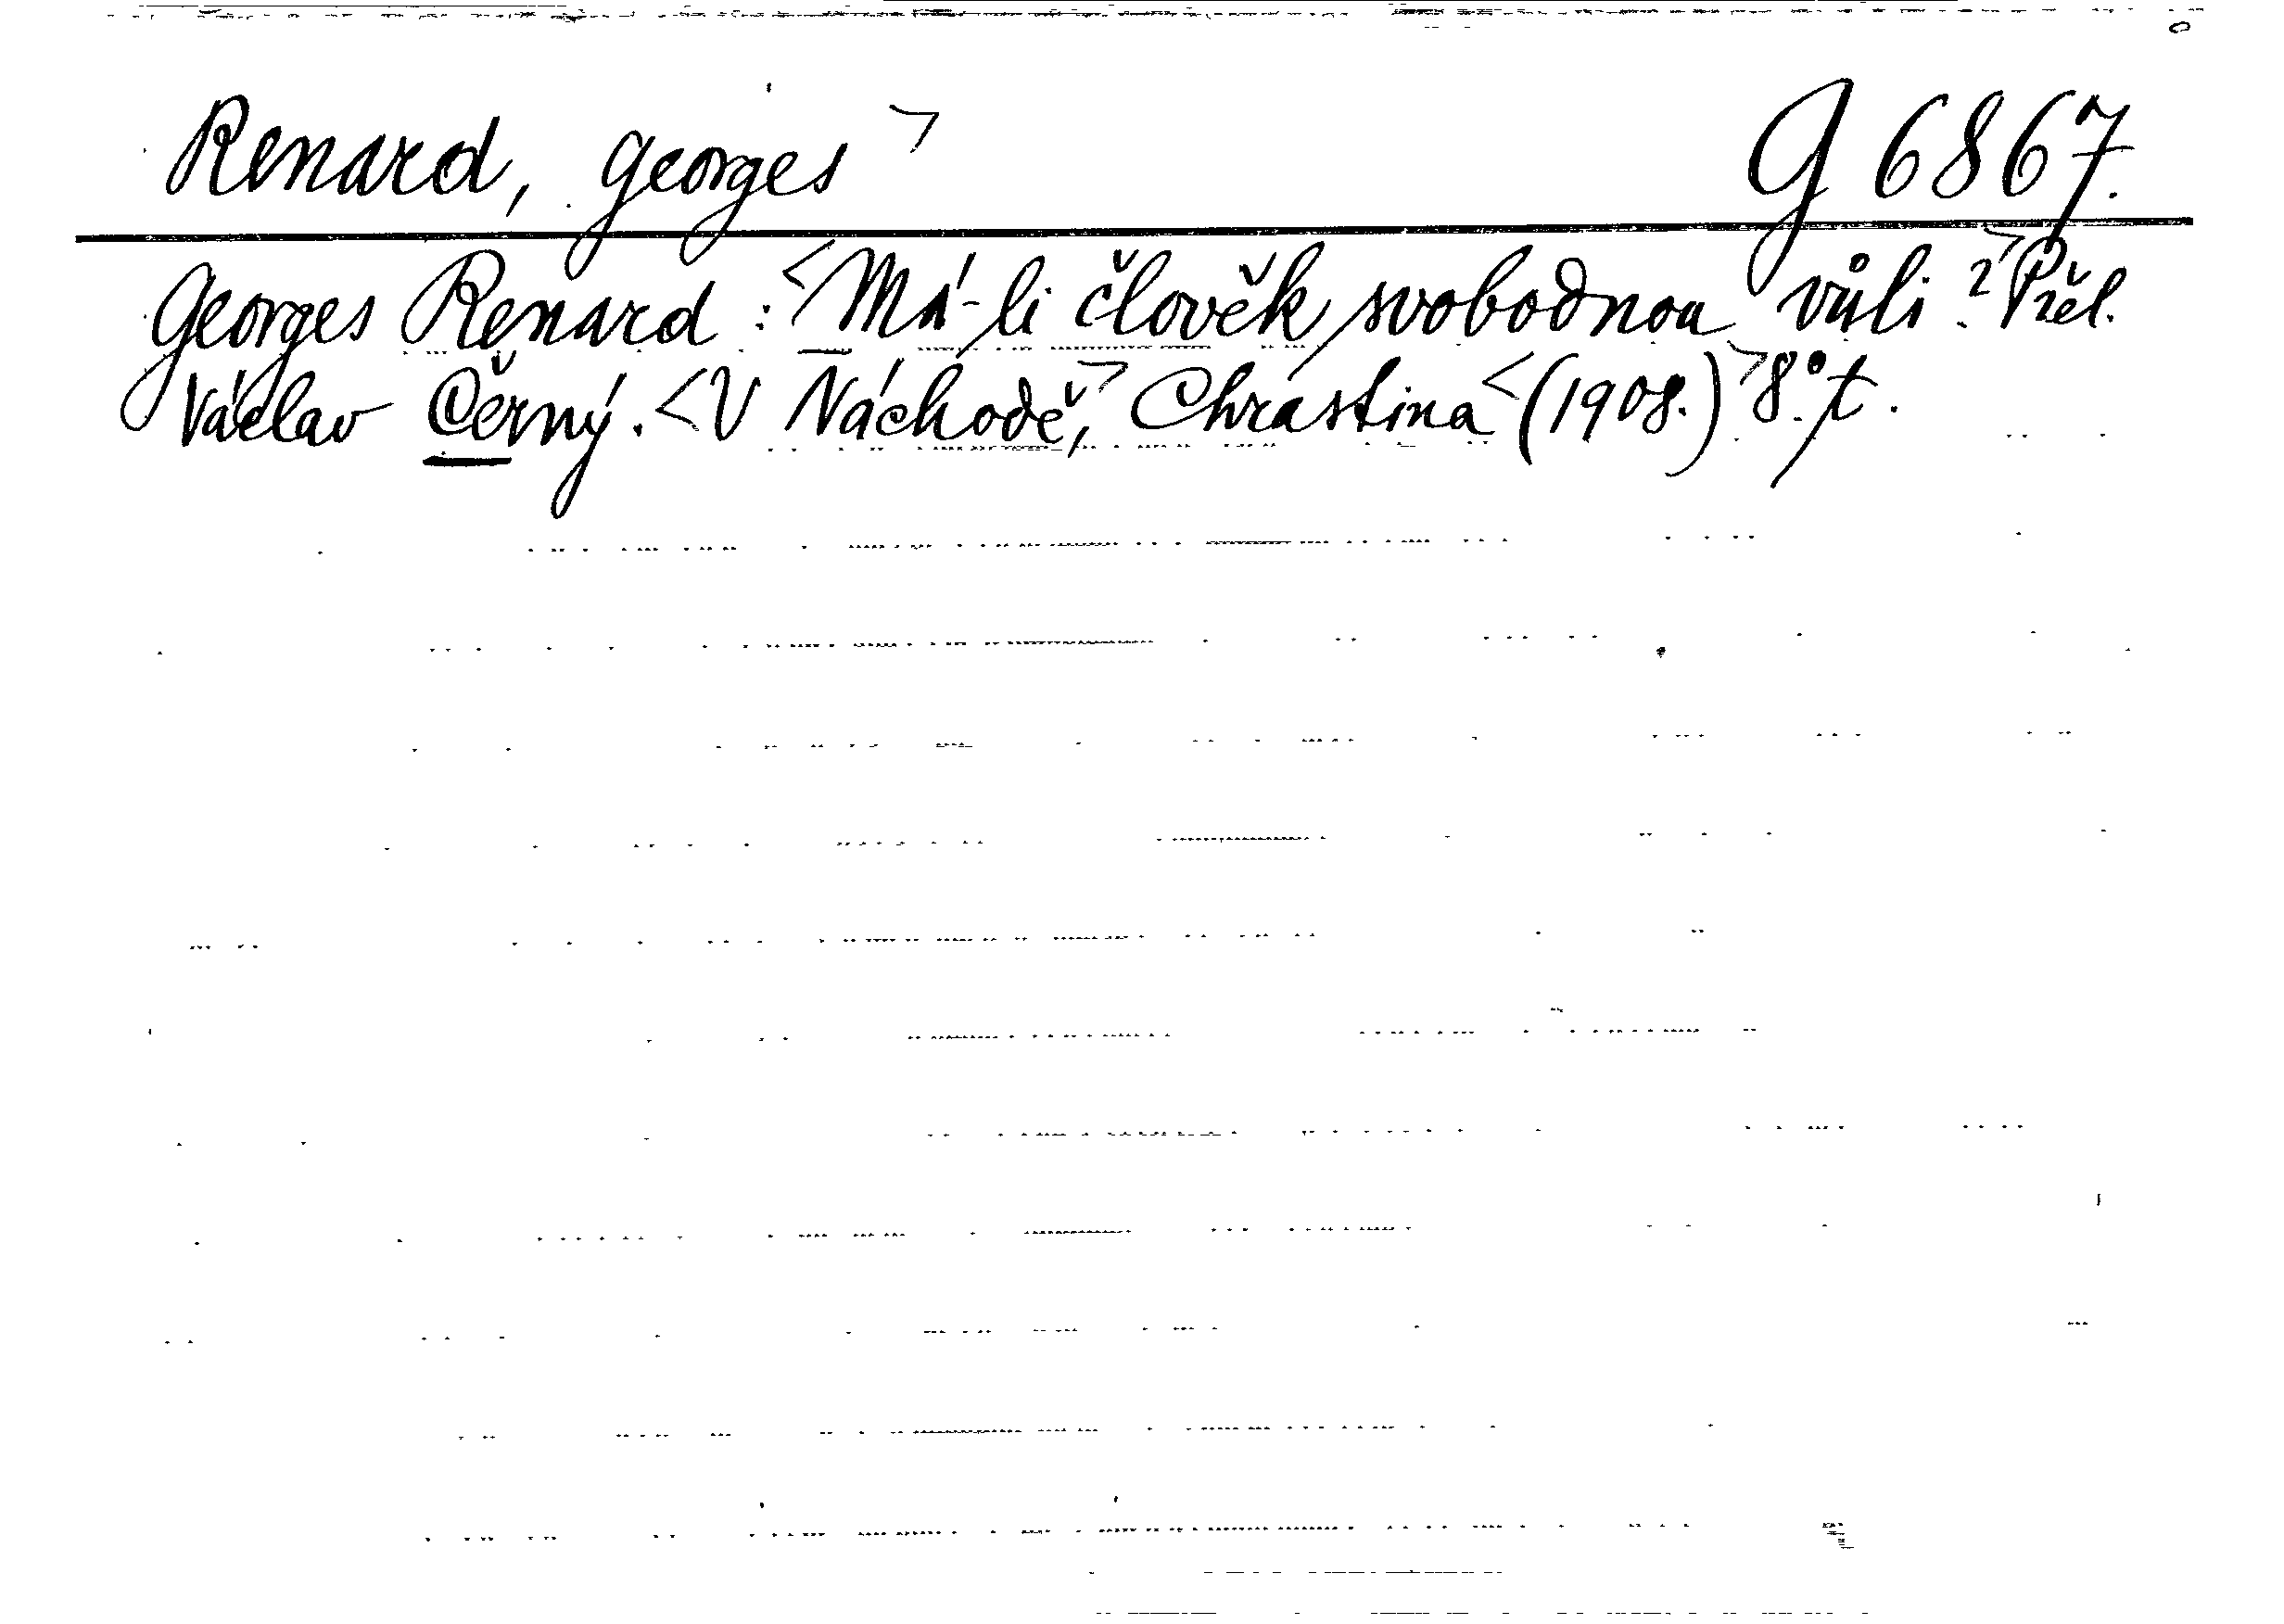 Renard, Georges ㄱ G 6867.
Georges Renard: <Má-li člověk svobodnou vůli?> Přel.
Václav Černý. <V Náchodě,> Chrastina <(1908.)> 8°. t.